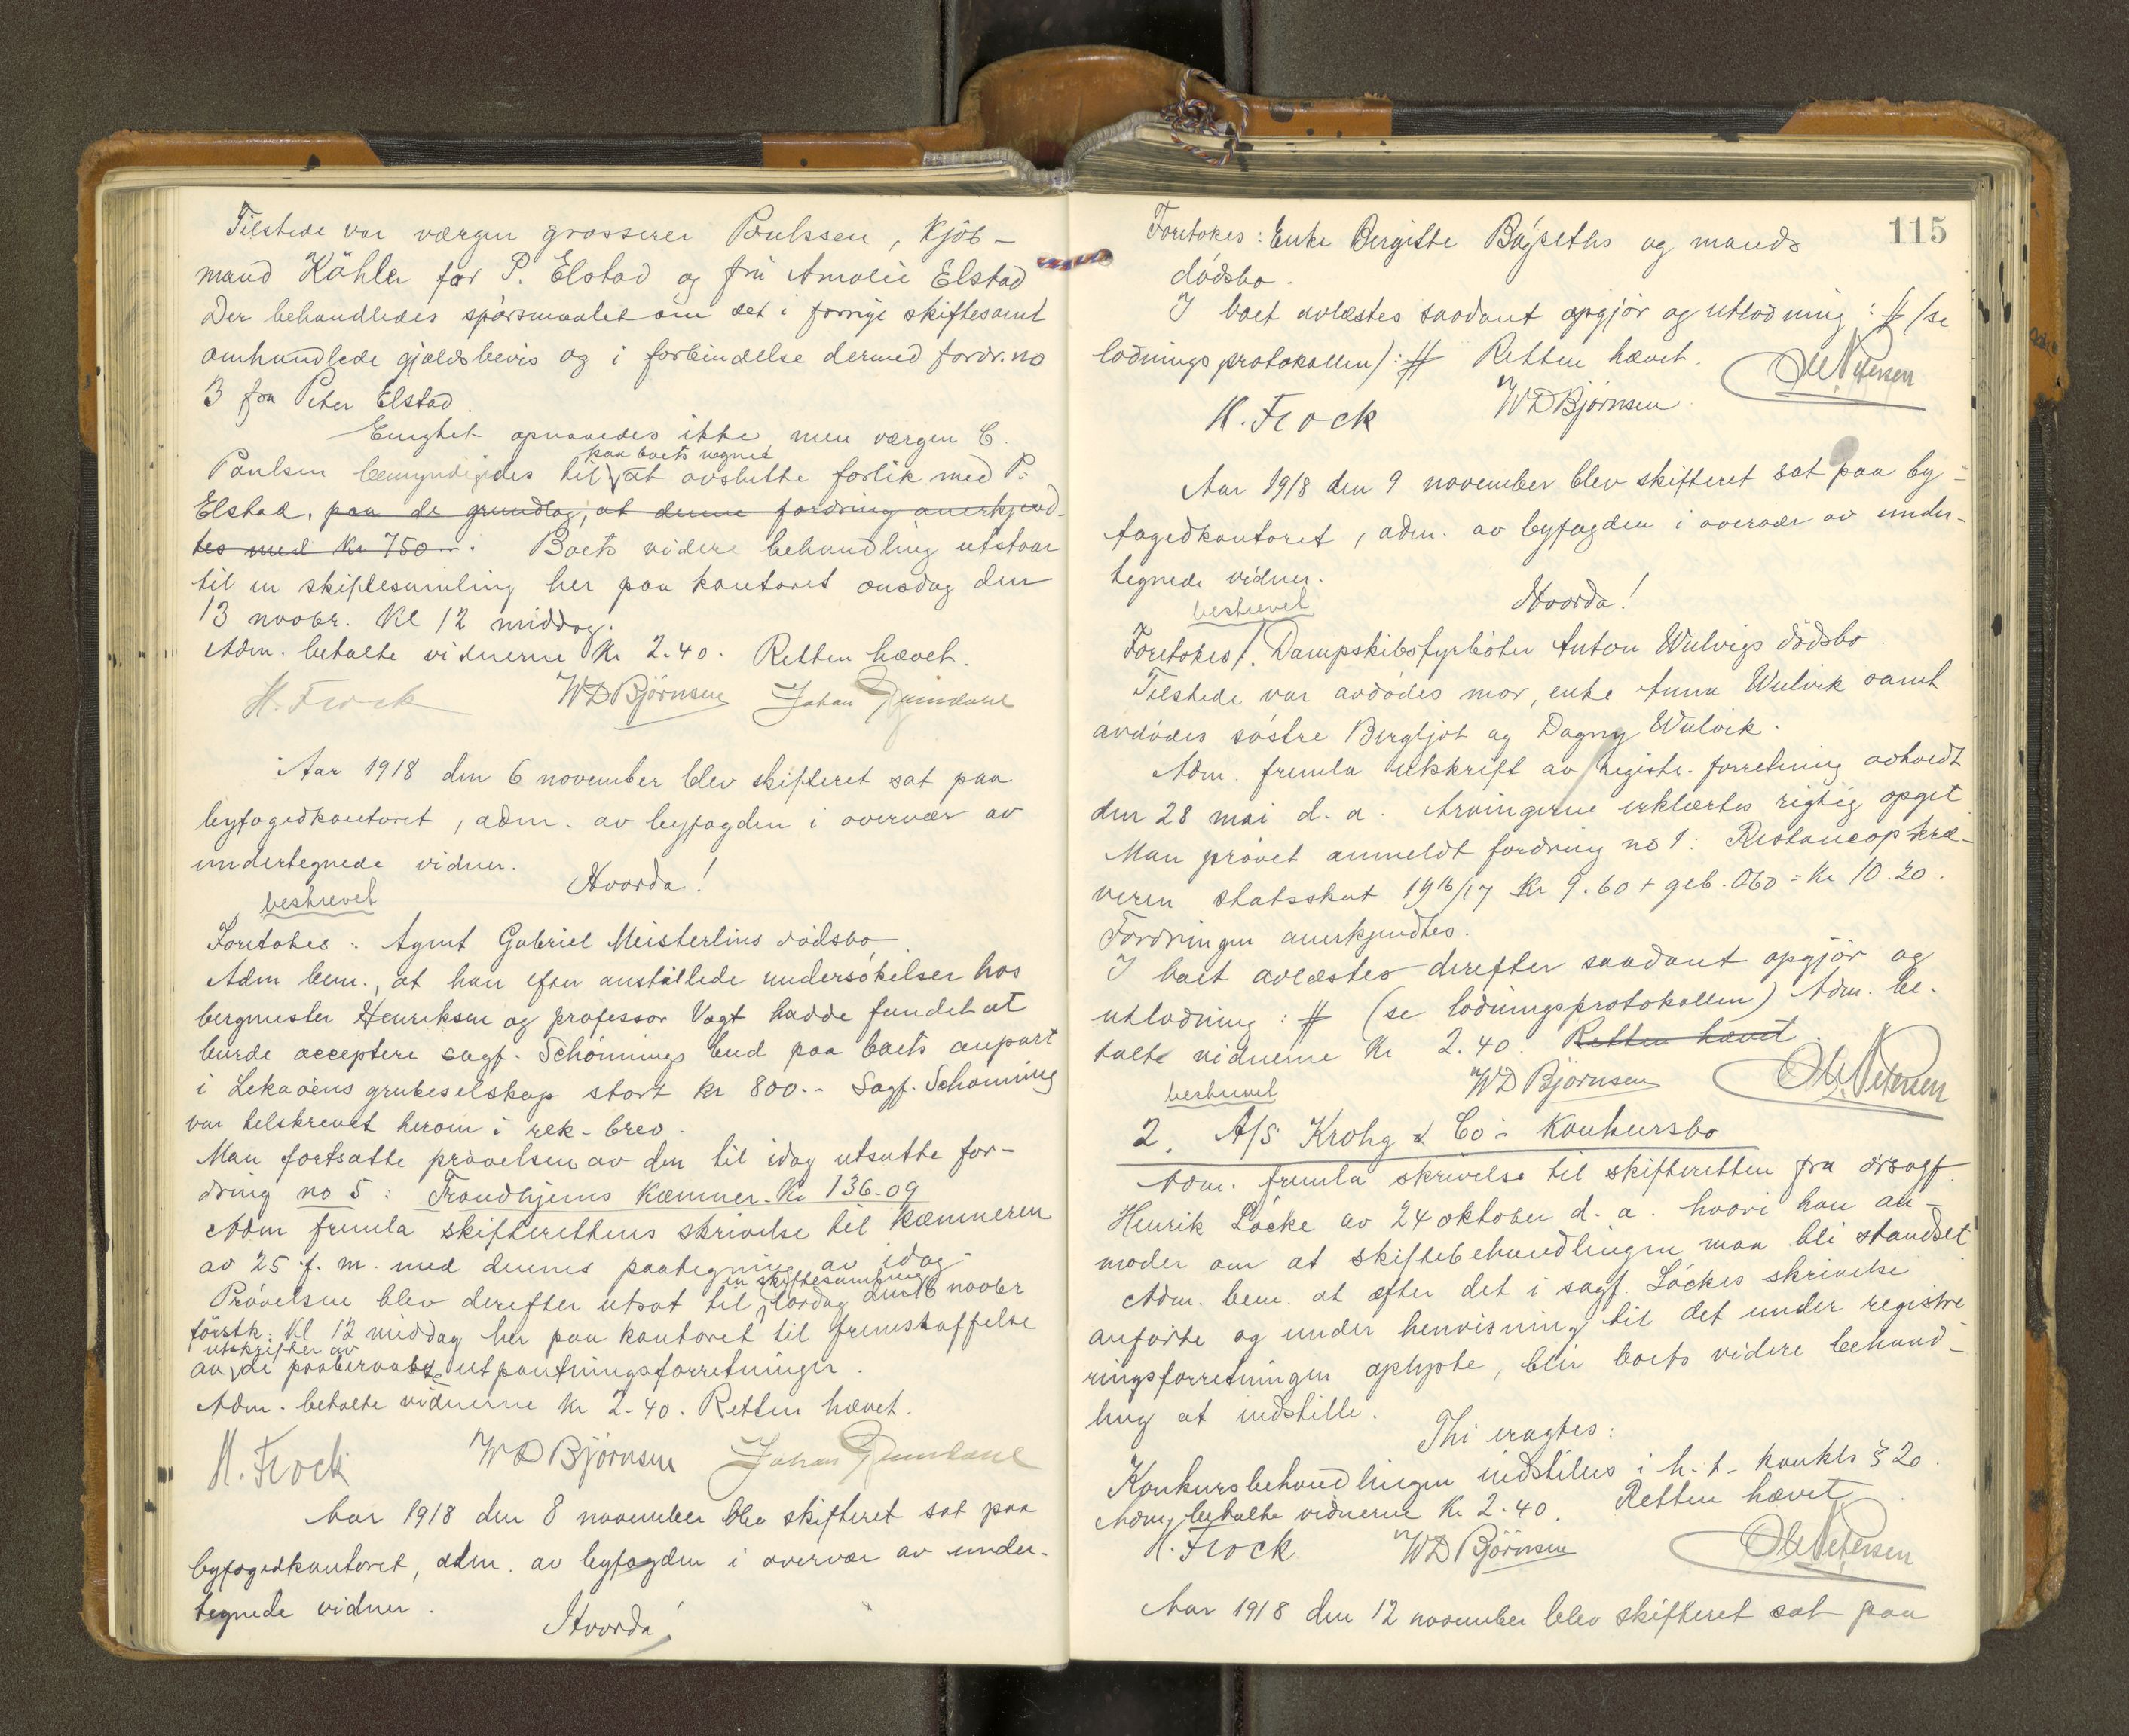 Tilstede var værgen grosserer Paulssen, Kjöb-
mand Köhler for P. Elstad og fru Amalie Elstad
Der behandledes spörsmaalet om det i forrige skiftesaml
omhandlede gjældsbevis og i forbindelse dermed fordr. no
3 fra Peter Elstad.
Enighet opnaaedes ikke, men værgen C.
paa boets vegne
Paulsen bemyndigedes til at avslutte forlik med P.
Elstad, paa de grundlag, at denne fordring anerkjend-
tes med Kr 750-. Boets videre behandling utstaar
til en skiftesamling her paa kontoret onsdag den
13 novbr. Kl 12 middag.
Adm. betalte vidnerne Kr 2.40. Retten hævet.
H. Frock WDBjörnsen Johan
Aar 1918 den 6 november blev skifteret sat paa
byfogedkontoret, adm. av byfogden i overvær av
undertegnede vidner.
Hvorda!
beskrevet
Foretokes: Agent Gabriel Meisterlins dödsbo
Adm bem., at han efter anstillede undersökelser hos
bergmester Henriksen og professor Vogt hadde fundet at
burde acceptere sagf. Schönnings bud paa boets anpart
i Lekaöens grubeselskap stort kr 800.- Sagf. Schönning
var tilskrevet herom i rek-brev.
Man fortsatte prövelsen av den til idag utsatte for-
dring no 5: Trondhjems Kæmner. Kr 136-09
Adm fremla skifterettens skrivelse til Kæmneren
av 25 f. m. med dennes paategning av idag
en skiftesamling
Prövelsen blev derefter utsat til lördag den 16 novbr
förstk. Kl 12 middag her paa kontoret til fremskaffelse
utskrifter av
av de paaberaabte utpantningsforretninger.
Adm. betalte vidnerne kr 2-40. Retten hævet.
H. Frock WDBjörnsen Johan
Aar 1918 den 8 november blev skifteret sat paa
byfogedkontoret, adm. av byfogden i overvær av under-
tegnede vidner.
Hvorda!
115
Foretokes: Enke Bergitte Bøyseths og mands
dödsbo.
I boet avlæstes saadant opgjör og utlodning: # (se
lodningsprotokollen): # Retten hævet.
H. Frock WDBjörnsen Ole Petersen
Aar 1918 den 9 november blev skifteret sat paa by-
fogedkontoret, adm. av byfogden i overvær av under-
tegnede vidner.
Hvorda!
beskrevet
Foretokes 1. Dampskibsfyrböter Anton Wulvigs dödsbo.
Tilstede var avdödes mor, enke Anna Wulvik samt
avdödes söstre Bergljot og Dagny Wulvik.
Adm. fremla utskrift av registr. forretning avholdt
den 28 mai d. a. Arvingerne erklærtes rigtig opgit
Man prövet anmeldt fordring no 1: Restanceopkræ-
veren statsskat 1916/17 Kr 9.60 + geb. 060 = Kr 10.20.
Fordringen anerkjendtes.
I boet avlæstes derefter saadant opgjör og
utlodning: # (se lodningsprotokollen) Adm. be-
talte vidnerne Kr 2.40. Retten hævet
WDBjörnsen Ole Petersen
beskrevet
2. A/S Krohg & Co: Konkursbo
Adm. fremla skrivelse til skifteretten fra orsagf.
Henrik Löcke av 24 oktober d. a. hvori han an-
moder om at skiftebehandlingen maa bli standset
Adm. bem. at efter det i sagf. Löckes skrivelse
anförte og under henvisning til det under registre
ringsforretningen oplyste, blir boets videre behand-
ling at indstille.
Thi eragtes:
Konkursbehandlingen indstilles i h. t. konkls § 20.
Adm. betalte vidnerne Kr 2-40. Retten hævet
H. Frock WDBjörnsen Ole Petersen
Aar 1918 den 12 november blev skifteret sat paa